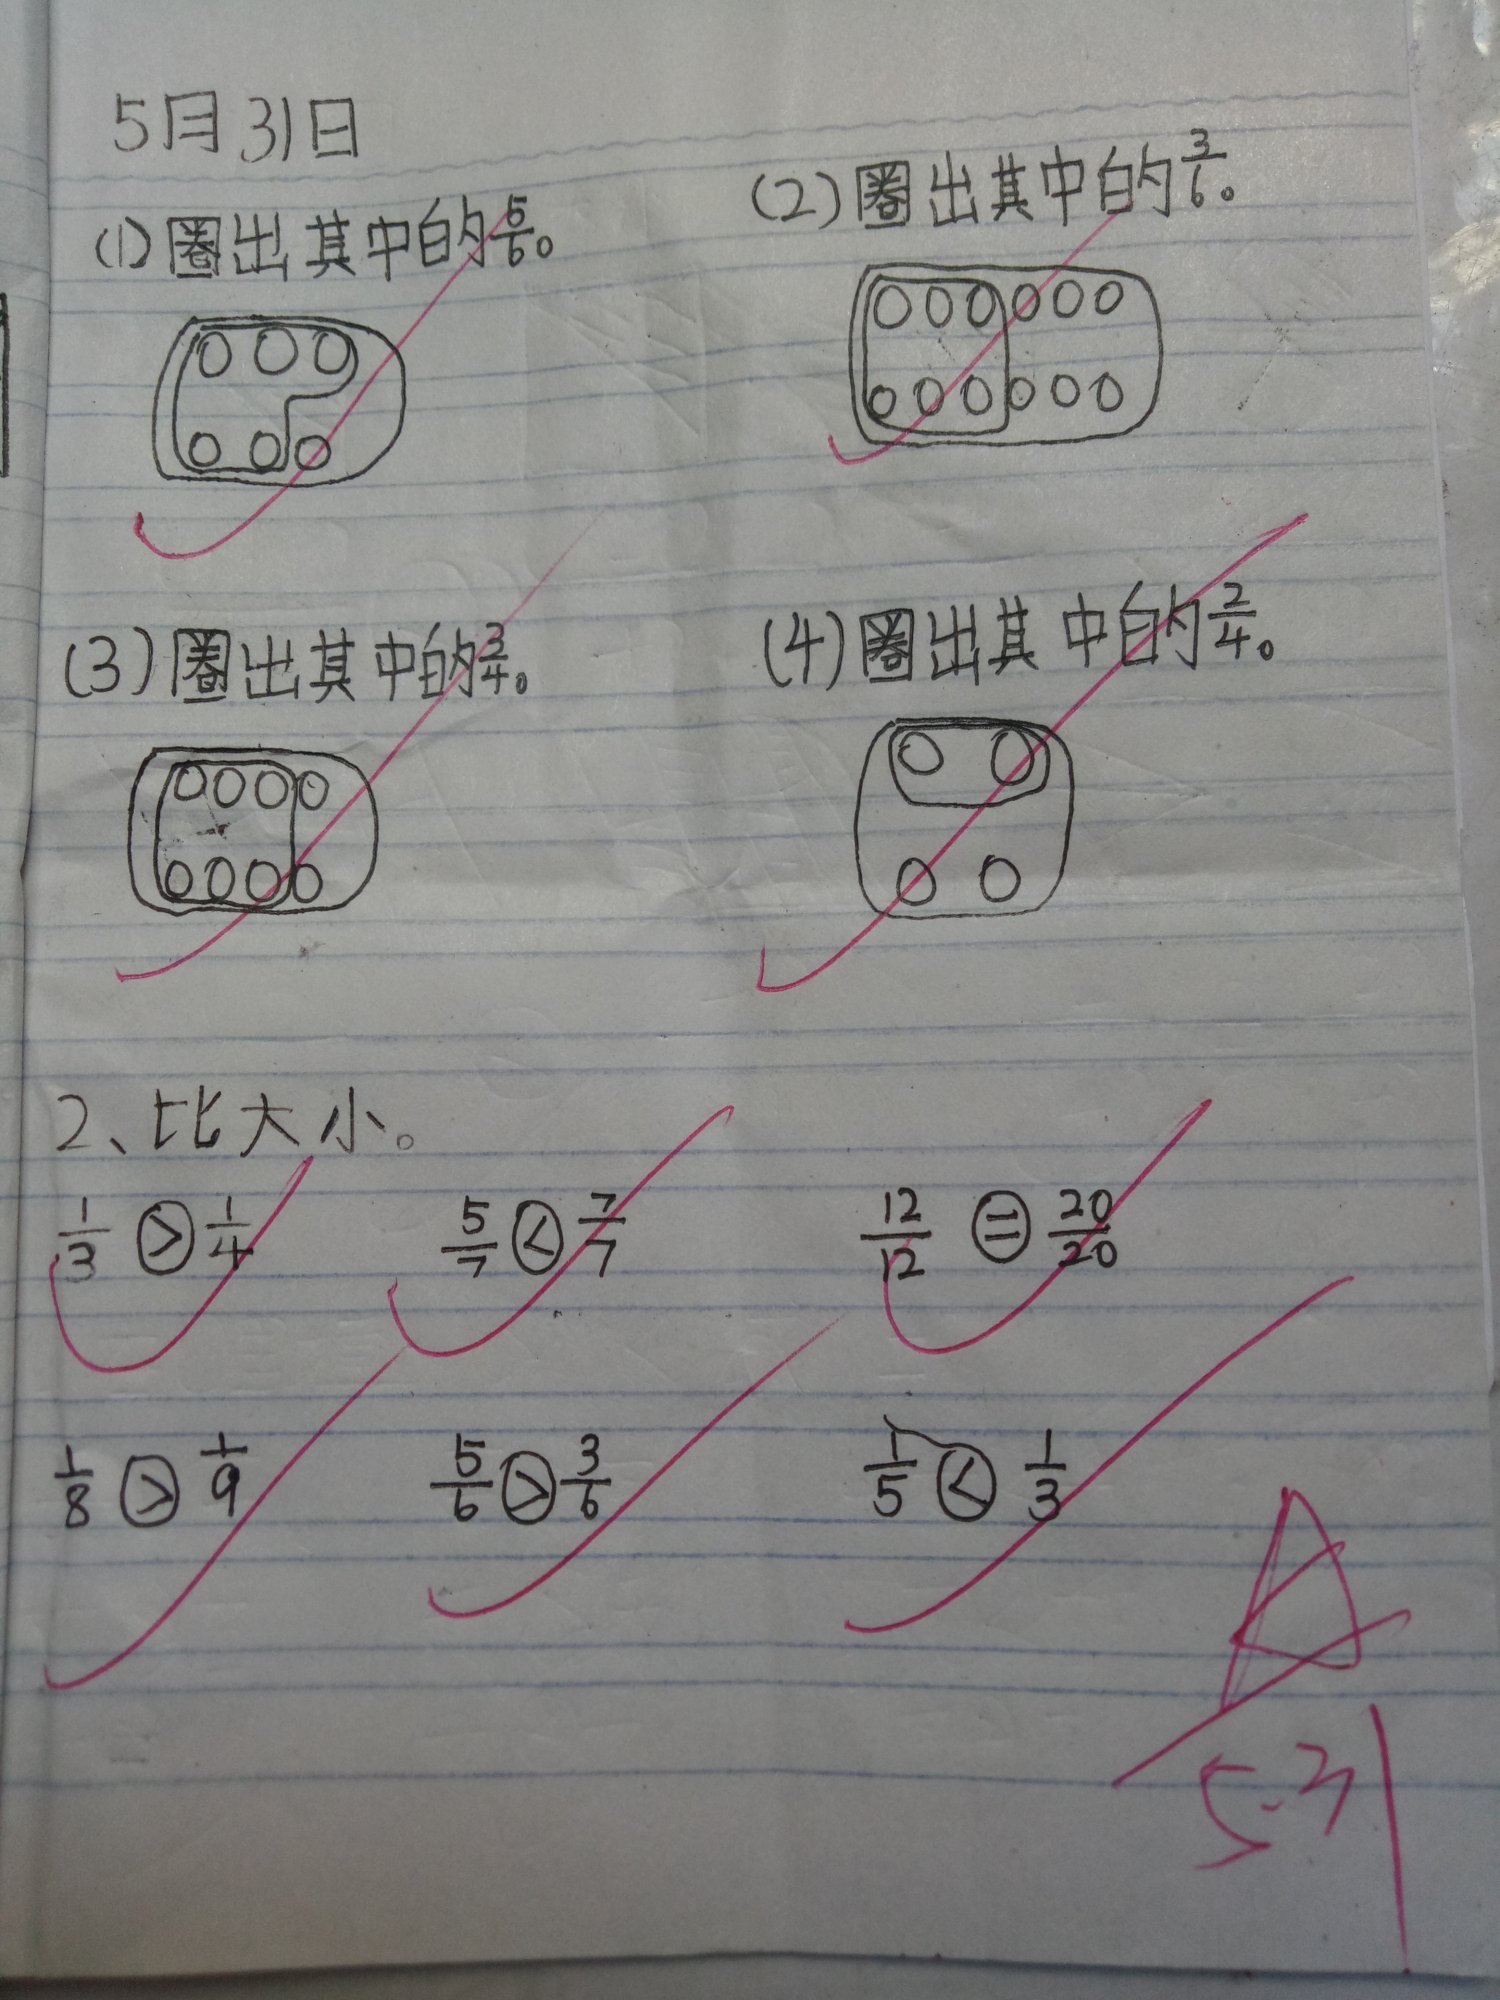 5月31日
(1)圈出其中的5/6。
(2)圈出其中的3/6。
(3)圈出其中的3/4。
(4)圈出其中的2/4。
2、比大小。
1/3 > 1/4  5/7 < 7/7  12/12 = 20/20
1/8 > 1/9  5/6 > 3/6  1/5 < 1/3
A
5.31